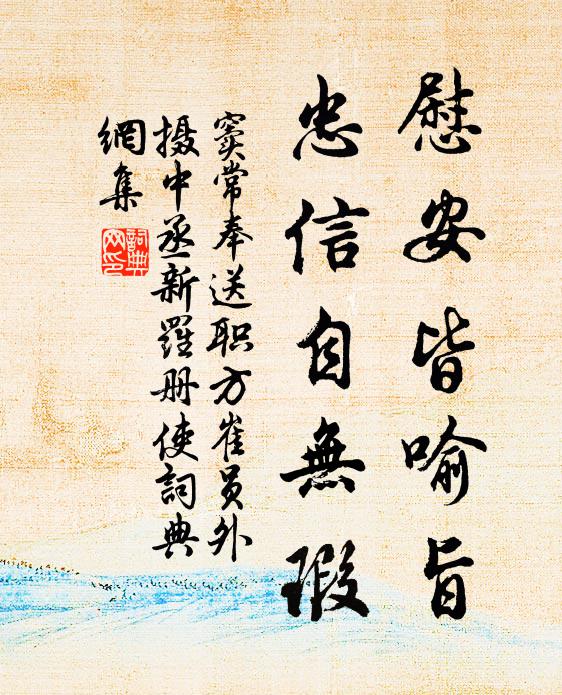 慰安皆喻旨
忠信自無瑕
窦常奉送职方崔员外
摄中丞新羅册使詞典
網集
詞典
网印